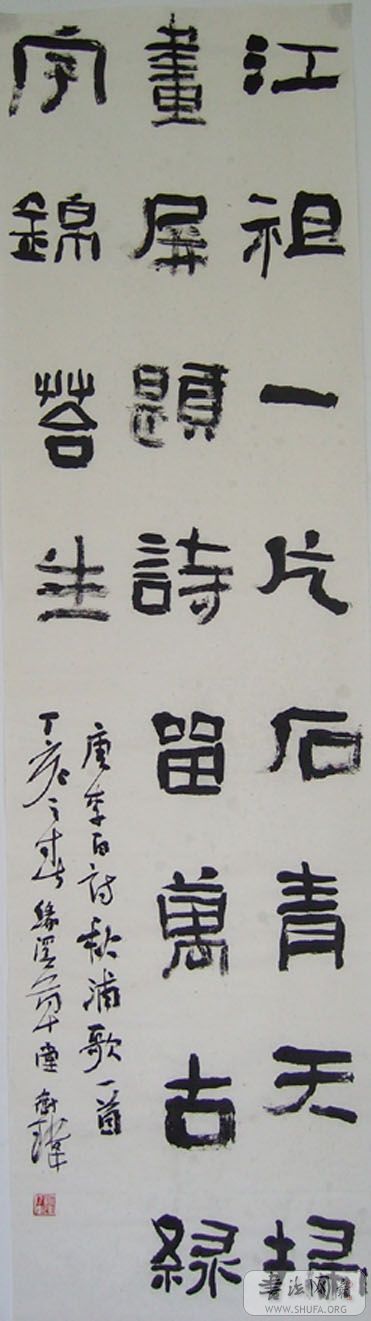 江祖一片石青天掃
畫屏題詩留萬古緑
字錦苔生
唐李白詩秋浦歌一首
丁亥之春
書法网
WWW.SHUFA.ORG